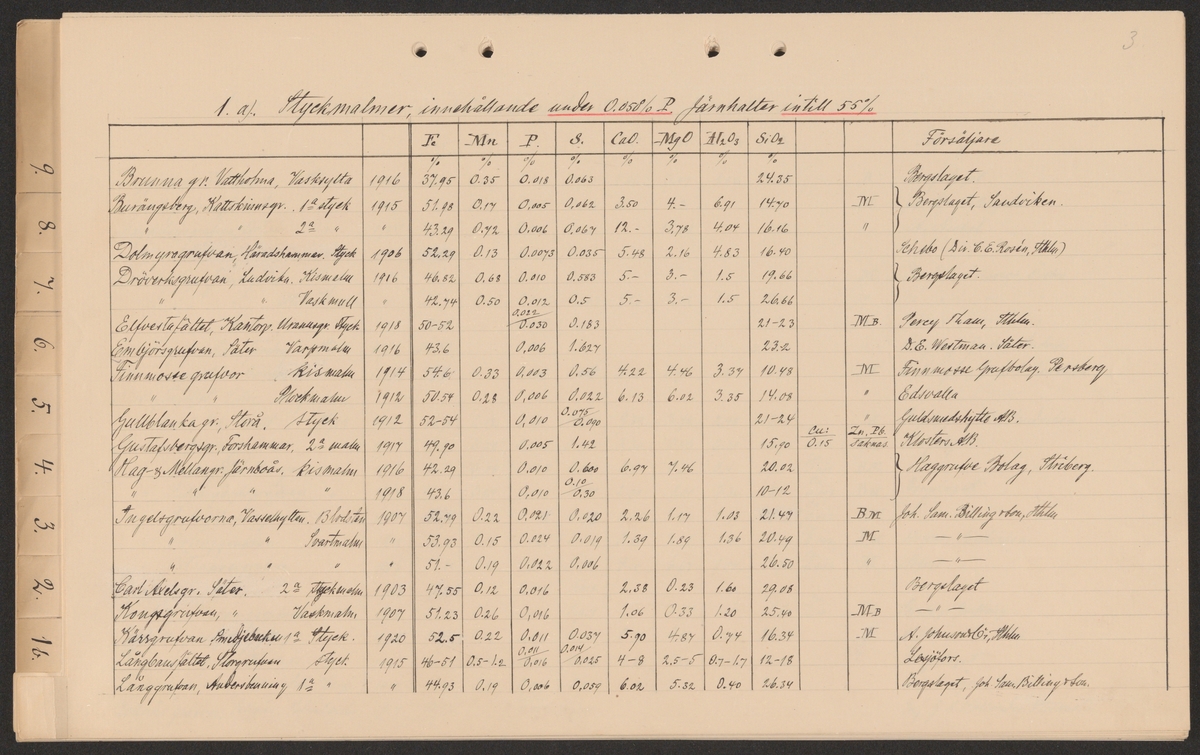 3
1. a). Styckmalmer, innehållande under 0.050% P. Järnhalter intill 55%
Fe Mn P. S. CaO. MgO Al2O3 SiO2 Försäljare
% % % % % % % %
Brunna gr. Vattholma, Vasksylta 1916 37.95 0.35 0.018 0.063 24.35 Bergslaget.
Burängsberg, Kattskinnsgr. 1a styck 1915 51.98 0.17 0.005 0.062 3.50 4.- 6.91 14.70 M Bergslaget, Sandviken.
" " 2a " " 43.29 0.72 0.006 0.067 12.- 3.78 4.04 16.16 "
Dolmyregrufvan, Häradshammar. Styck 1906 52.29 0.13 0.0073 0.035 5.48 2.16 4.83 16.40 Schebo (Dir. C.E. Rosén, Sthlm)
Dröverksgrufvan, Ludvika. Kismalm 1916 46.82 0.68 0.010 0.583 5.- 3.- 1.5 19.66 Bergslaget.
" " Vaskmull 42.74 0.50 0.012 0.5 5.- 3.- 1.5 26.66
Elfvestafältet, Kantorp. Uranusgr. Styck 1918 50-52 0.022/0.030 0.183 21-23 M B. Percy Tham, Sthlm.
Embjörsgrufvan, Säter Varpmalm 1916 43.6 0.006 1.627 23.2 D.E. Westman. Säter.
Finnmossegrufvor kismalm 1914 54.6 0.33 0.003 0.56 4.22 4.46 3.37 10.48 M Finnmosse Grufbolag. Persberg
" " Styckmalm 1912 50.54 0.28 0.006 0.022 6.13 6.02 3.35 14.08 " Edsvalla
Gullblanka gr. Storå. styck 1912 52-54 0.010 0.075/0.090 21-24 " Guldsmedshytte A.B.
Gustafsbergsgr. Forshammar. 2a malm 1917 49.90 0.005 1.42 15.90 Cu: 0.15 Zn. Pb. saknas. Klosters A.B.
Hag- & Mellangr. Järnboås. kismalm 1916 42.29 0.010 0.600 6.97 7.46 20.02 Haggrufve Bolag, Striberg.
" " " " 1918 43.6 0.010 0.10/0.30 10-12
Ingelsgrufvorna, Vasselhyttan. Blodsten 1907 52.79 0.22 0.021 0.020 2.26 1.17 1.03 21.47 B M Joh. Sam. Billing & son, Sthlm
" " Svartmalm " 53.93 0.15 0.024 0.019 1.39 1.89 1.36 20.49 M - " -
" " " " 51.- 0.19 0.022 0.006 26.50 " - " -
Carl Axelsgr. Säter. 2a Styckmalm 1903 47.55 0.12 0.016 2.38 0.23 1.60 29.08 Bergslaget
Kongsgrufvan, " Vaskmalm 1907 51.23 0.26 0.016 1.06 0.33 1.20 25.40 M B - " -
Kärrgrufvan Smedjebacken 1a Styck. 1920 52.5 0.22 0.011 0.037 5.90 4.87 0.74 16.34 M A. Johnson & Co, Sthlm
Långbansfältet, Storgrufvan styck 1915 46-51 0.5-1.2 0.011/0.016 0.014/0.025 4-8 2.5-5 0.7-1.7 12-18 Lesjöfors.
Långgrufvan, Andersbenning 1a " " 44.93 0.19 0.006 0.059 6.02 5.32 0.40 26.34 Bergslaget, Joh. Sam. Billing & Son.
9. 8. 7. 6. 5. 4. 3. 2. 1b.